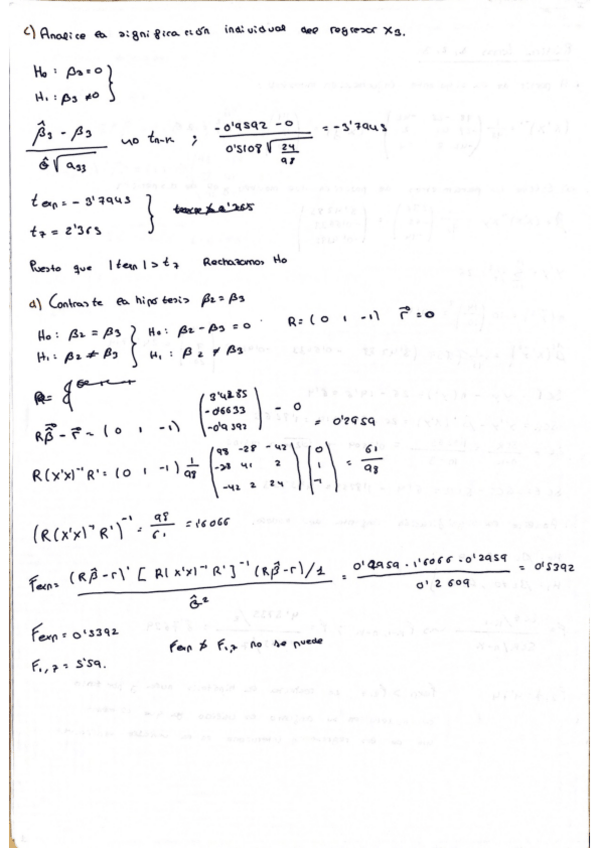 c) Analice la significación individual del regresor X3.
H0 : β3 = 0
H1 : β3 ≠ 0 }
(β̂3 - β3) / (σ̂ √a33) ~ tn-k ; (-0'9592 - 0) / (0'5108 √(24/98)) = -3'7943
texp = -3'7943
t7 = 2'365 }
Puesto que |texp| > t7 Rechazamos H0
d) Contraste la hipótesis β2 = β3
H0 : β2 = β3 } H0 : β2 - β3 = 0 R = (0 1 -1) r⃗ = 0
H1 : β2 ≠ β3 } H1 : β2 ≠ β3
Rβ̂ - r⃗ = (0 1 -1) (3'4285 -0'6633 -0'9592) - 0 = 0'2959
R(x'x)⁻¹R' = (0 1 -1) 1/98 (98 -28 -42 -28 41 2 -42 2 24) (0 1 -1) = 61/98
(R(x'x)⁻¹R')⁻¹ = 98/61 = 1'6066
Fexp = (Rβ̂-r)' [R(x'x)⁻¹R']⁻¹ (Rβ̂-r)/1 / σ̂² = 0'2959 · 1'6066 · 0'2959 / 0'2609 = 0'5392
Fexp = 0'5392
F1,7 = 5'59. Fexp ≯ F1,7 no se puede